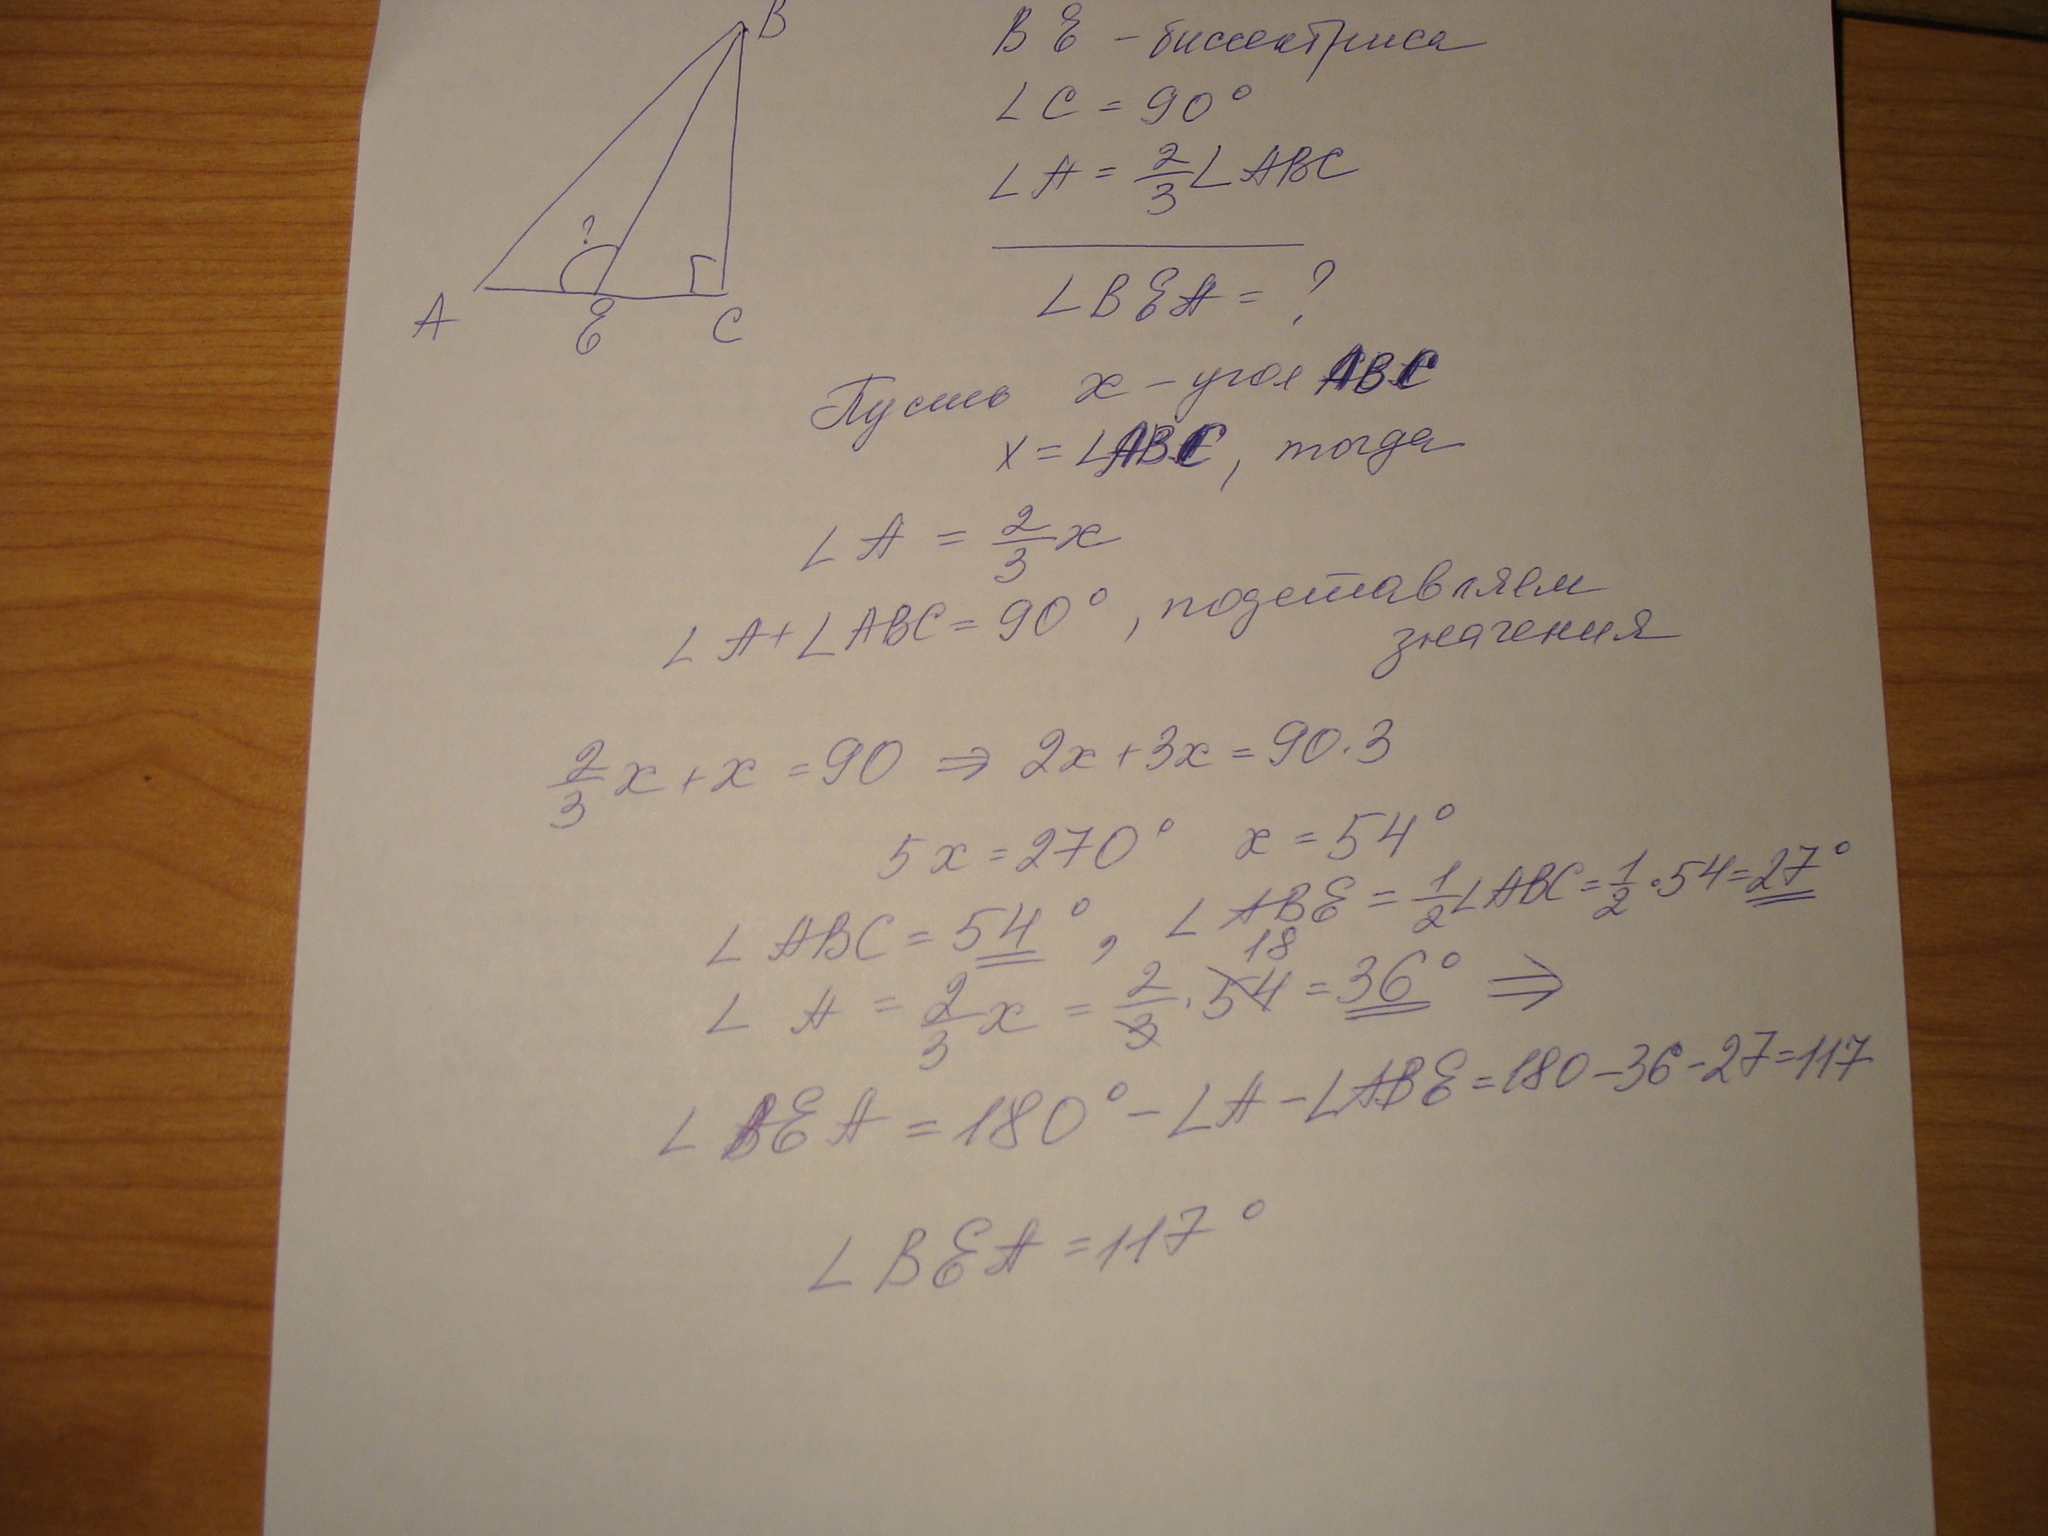 B
BE - биссектриса
∠C = 90°
∠A = 2/3 ∠ABC
?
A E C
∠BEA = ?
Пусть x - угол ABC
x = ∠ABC, тогда
∠A = 2/3 x
∠A + ∠ABC = 90°, подставляем
значения
2/3 x + x = 90 ⇒ 2x + 3x = 90·3
5x = 270° x = 54°
∠ABC = 54°, ∠ABE = 1/2 ∠ABC = 1/2 · 54 = 27°
18
∠A = 2/3 x = 2/3 · 54 = 36° ⇒
∠BEA = 180° - ∠A - ∠ABE = 180 - 36 - 27 = 117
∠BEA = 117°